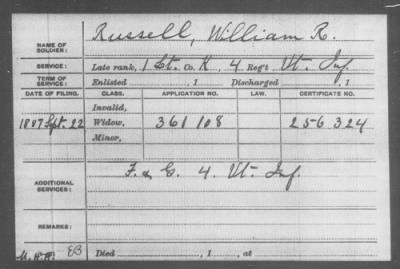 NAME OF SOLDIER: Russell, William R.
SERVICE: Late rank, 1 St. Co. K, 4 Reg't Vt. Inf.
TERM OF SERVICE: Enlisted , 1 Discharged , 1
DATE OF FILING. CLASS. APPLICATION NO. LAW. CERTIFICATE NO.
Invalid,
1887 Sept. 22 Widow, 361108 256324
Minor,
ADDITIONAL SERVICES: F. & G. 4. Vt. Inf.
REMARKS:
EB Died , 1 , at